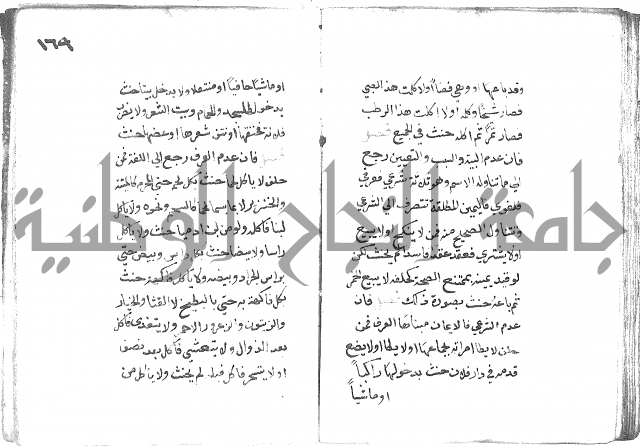 ١٦٩
وقد باعها او وهي فضاً اولا كلت هذا الصبي
فصار شيخا وكله اولا اكلت هذا الرطب
فصار تمراً ثم اكله حنث في الجميع فصل
فان عدم النية والسبب والتعيين رجع
الى ما تناوله الاسم وهو ثلاثة شرعي فعرفي
فلغوي فاليمين المطلقة تنصرف الى الشرعي
وتتناول الصحيح منه فمن لا ينكح او لا يبيع
او لا يشتري فعقد عقدا فاسدا لم يحنث لكن
لو قيد يمينه بممتنع الصحة كحلفه لا يبيع الخمر
ثم باعه حنث بصورة ذلك فصل فان
عدم الشرعي فالايمان مبناها العرف فمن
حلف لا يطا امراته حنث بجماعها او لا يطا او لا يضع
قدمه في دار فلان حنث بدخولها راكبا
او ماشياً
او ماشياً حافياً او منتعلا ولا يدخل بيتا حنث
بدخول المسجد والحمام وبيت الشعر ولا يضرب
فلانة فخنقها او نتف شعرها او عضها حنث
فصل فان عدم العرف رجع الى اللغة فمن
حلف لا ياكل لحما حنث بكل لحم حتى المحرم كالميتة
والخنزير لا بما لا يسمى لحما كالشحم ونحوه ولا ياكل
لبنا فاكله ولو من لبن ادمية حنث ولا ياكل
راسا ولا بيضا حنث بكل راس وبيض حتى
براس الجراد وبيضه ولا ياكل فاكهة حنث
بكل فاكهة حتى بالبطيخ لا القثا والخيار
والزيتون والزعرور الاحمر ولا يتغدى فاكل
بعد الزوال ولا يتعشى فاكل بعد نصف
او لا يتسحر فاكل قبله لم يحنث ولا ياكل من
جامعة النجاح الوطنية